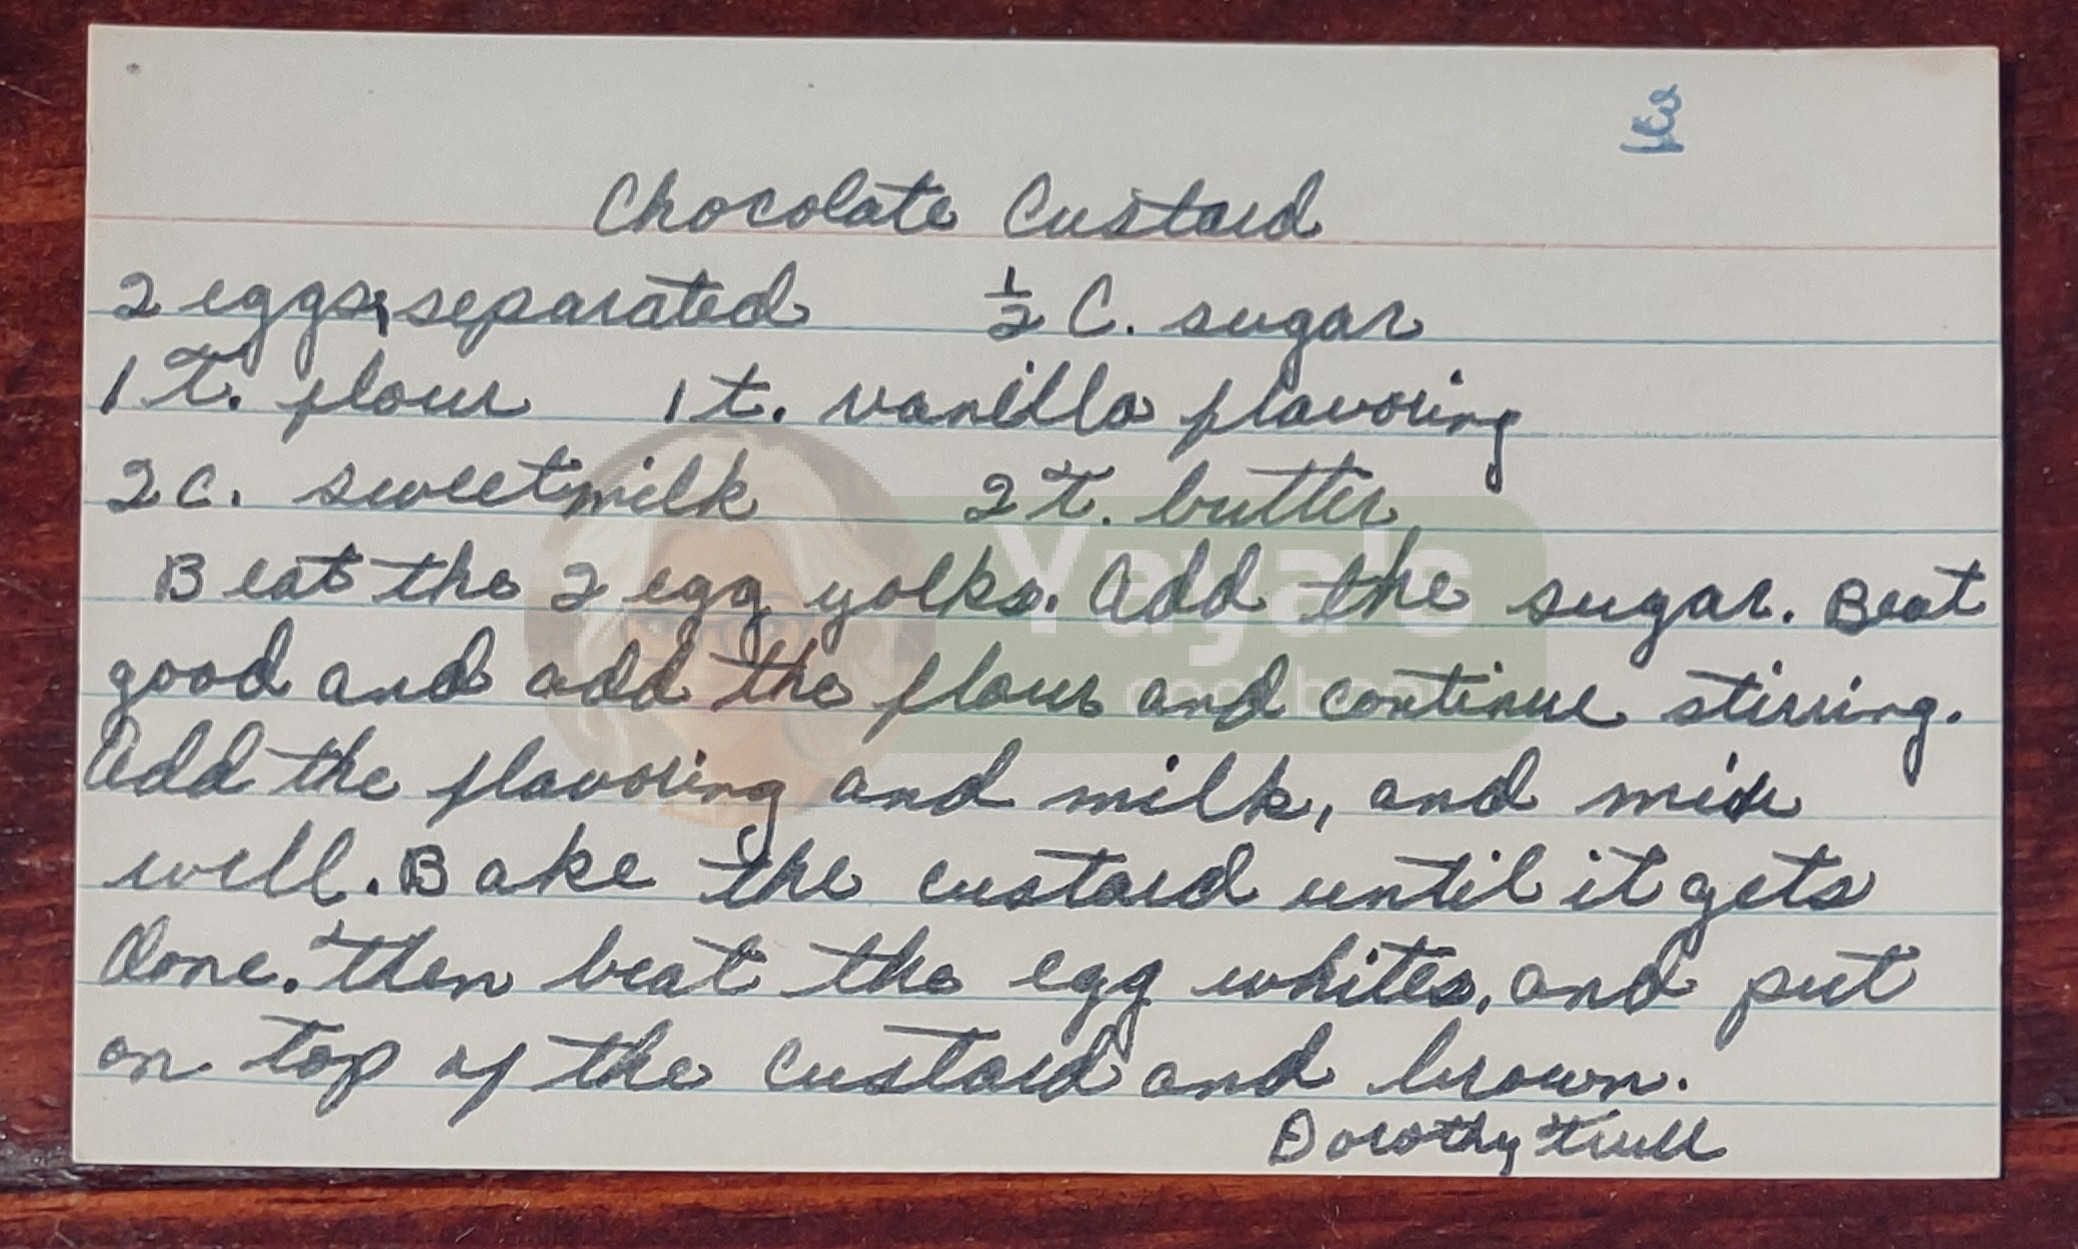 Chocolate Custard
2 eggs, separated ½ C. sugar
1 T. flour 1 t. vanilla flavoring
2 c. sweetmilk 2 T. butter
Beat the 2 egg yolks. Add the sugar. Beat
good and add the flour and continue stirring.
Add the flavoring and milk, and mix
well. Bake the custard until it gets
done. Then beat the egg whites, and put
on top of the custard and brown.
Dorothy Trull
Yaya's
cookbook